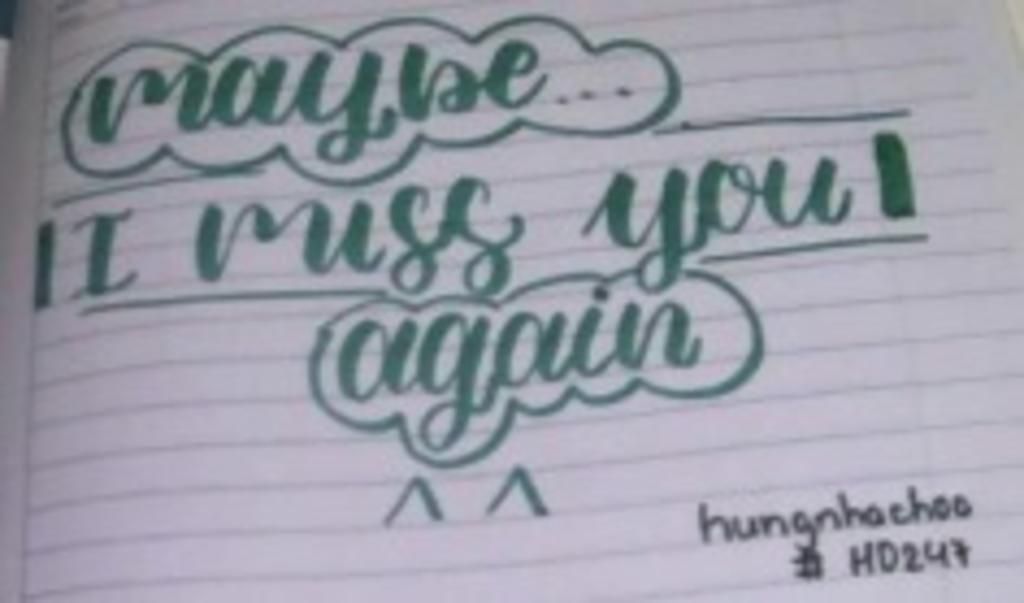 maybe...
I miss you
again
^ ^
hungnhachoa
# HD247